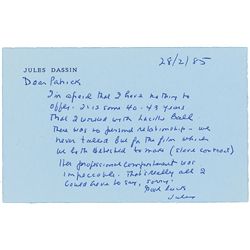 28/2/85
JULES DASSIN
Dear Patrick
I'm afraid that I have nothing to
offer. It is some 40-43 years
that I worked with Lucille Ball
There was no personal relationship - we
never talked but for the film which
we both detested to make (slave contract)
Her professional comportment was
impeccable. That's really all I
would have to say, sorry.
Good luck
Jules